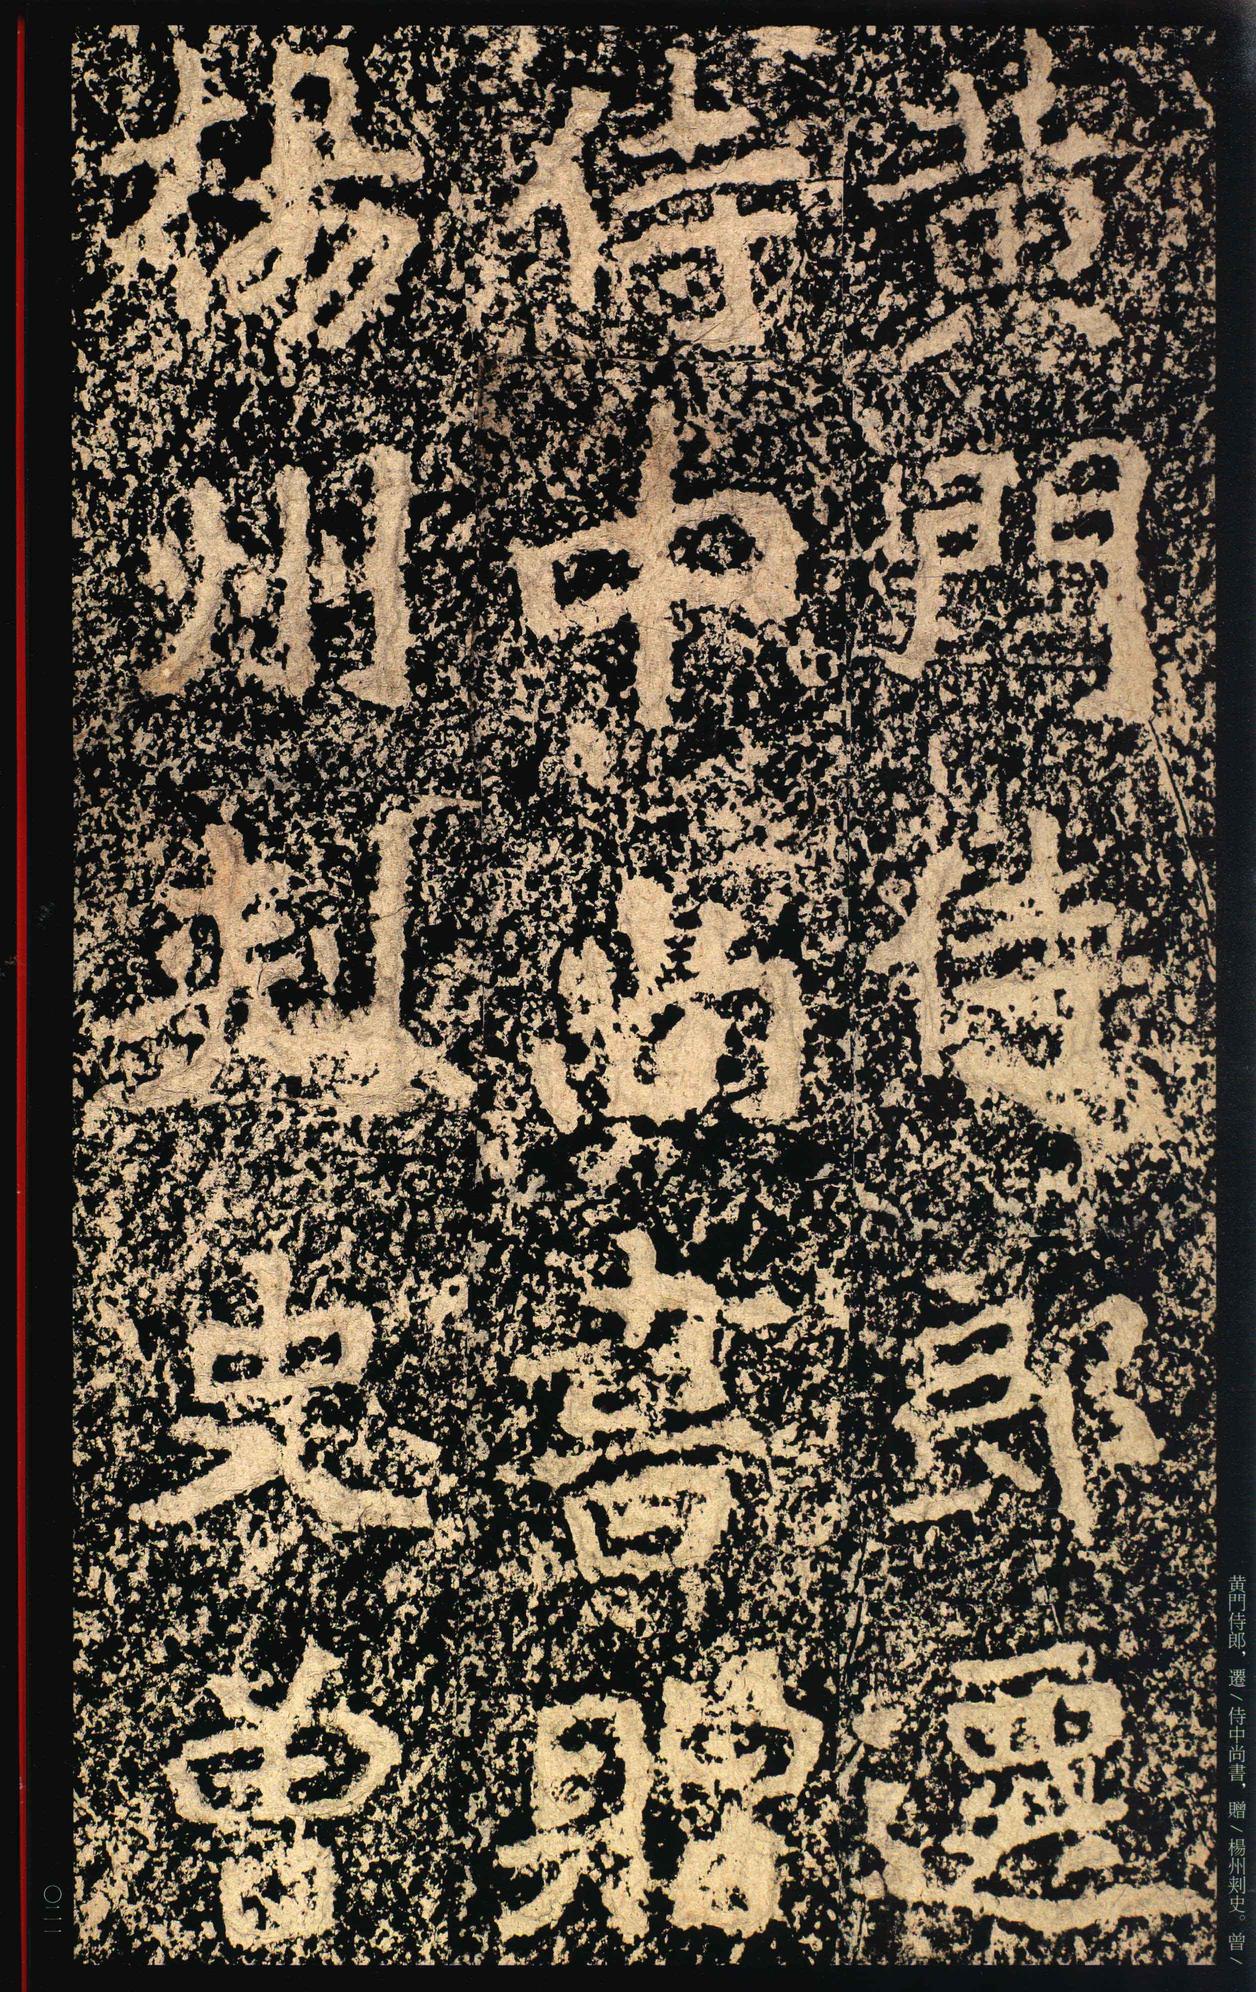 黄門侍郎遷
侍中尚書贈
楊州刾史曾
黄門侍郎，遷／侍中尚書，贈／楊州刾史。曾／
〇二二